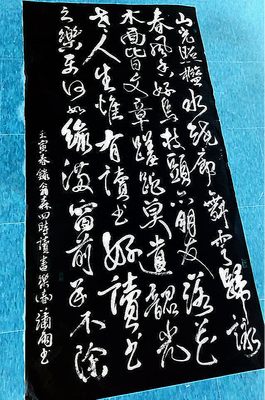 山光照檻水繞廊舞雩歸詠
春風香好鳥枝頭亦朋友落花
水面皆文章蹉跎莫遣韶光
老人生惟有讀书好讀书
之樂樂何如綠滿窗前草不除
壬寅春錄翁森四時讀書樂